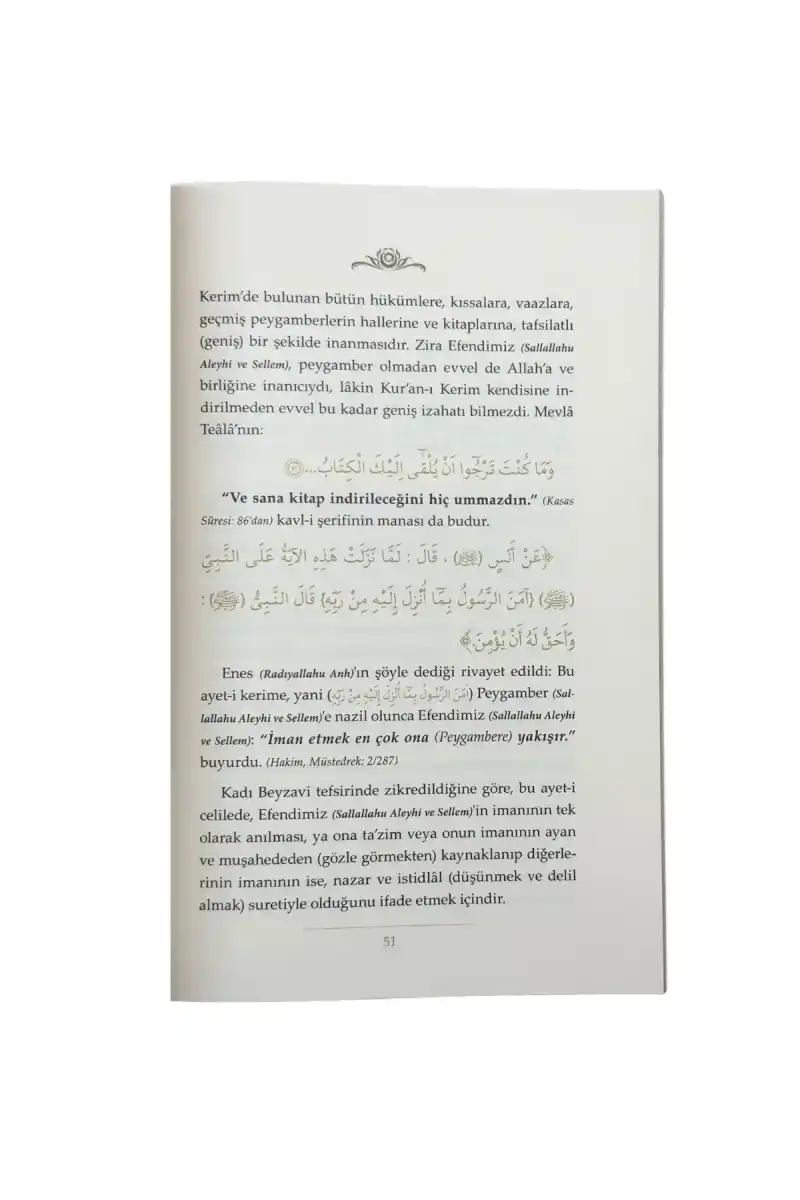 Kerim’de bulunan bütün hükümlere, kıssalara, vaazlara,
geçmiş peygamberlerin hallerine ve kitaplarına, tafsilatlı
(geniş) bir şekilde inanmasıdır. Zira Efendimiz (Sallallahu
Aleyhi ve Sellem), peygamber olmadan evvel de Allah’a ve
birliğine inanıcıydı, lâkin Kur’an-ı Kerim kendisine in-
dirilmeden evvel bu kadar geniş izahatı bilmezdi. Mevlâ
Teâlâ’nın:
وَمَا كُنْتَ تَرْجُٓوا اَنْ يُلْقٰٓى اِلَيْكَ الْكِتَابُ...﴿٨٦﴾
“Ve sana kitap indirileceğini hiç ummazdın.” (Kasas
Sûresi: 86’dan) kavl-i şerifinin manası da budur.
﴿عَنْ أَنَسٍ (ﷺ) ، قَالَ : لَمَّا نَزَلَتْ هَذِهِ الآيَةُ عَلَى النَّبِيِّ
(ﷺ) {آمَنَ الرَّسُولُ بِمَا أُنْزِلَ إِلَيْهِ مِنْ رَبِّهِ} قَالَ النَّبِيُّ (ﷺ) :
وَأَحَقُّ لَهُ أَنْ يُؤْمِنَ.﴾
Enes (Radıyallahu Anh)’ın şöyle dediği rivayet edildi: Bu
ayet-i kerime, yani (اٰمَنَ الرَّسُولُ بِمَٓا اُنْزِلَ اِلَيْهِ مِنْ رَبِّهٖ) Peygamber (Sal-
lallahu Aleyhi ve Sellem)’e nazil olunca Efendimiz (Sallallahu Aleyhi
ve Sellem): “İman etmek en çok ona (Peygambere) yakışır.”
buyurdu. (Hakim, Müstedrek: 2/287)
Kadı Beyzavi tefsirinde zikredildiğine göre, bu ayet-i
celilede, Efendimiz (Sallallahu Aleyhi ve Sellem)’in imanının tek
olarak anılması, ya ona ta’zim veya onun imanının ayan
ve muşahededen (gözle görmekten) kaynaklanıp diğerle-
rinin imanının ise, nazar ve istidlâl (düşünmek ve delil
almak) suretiyle olduğunu ifade etmek içindir.
51